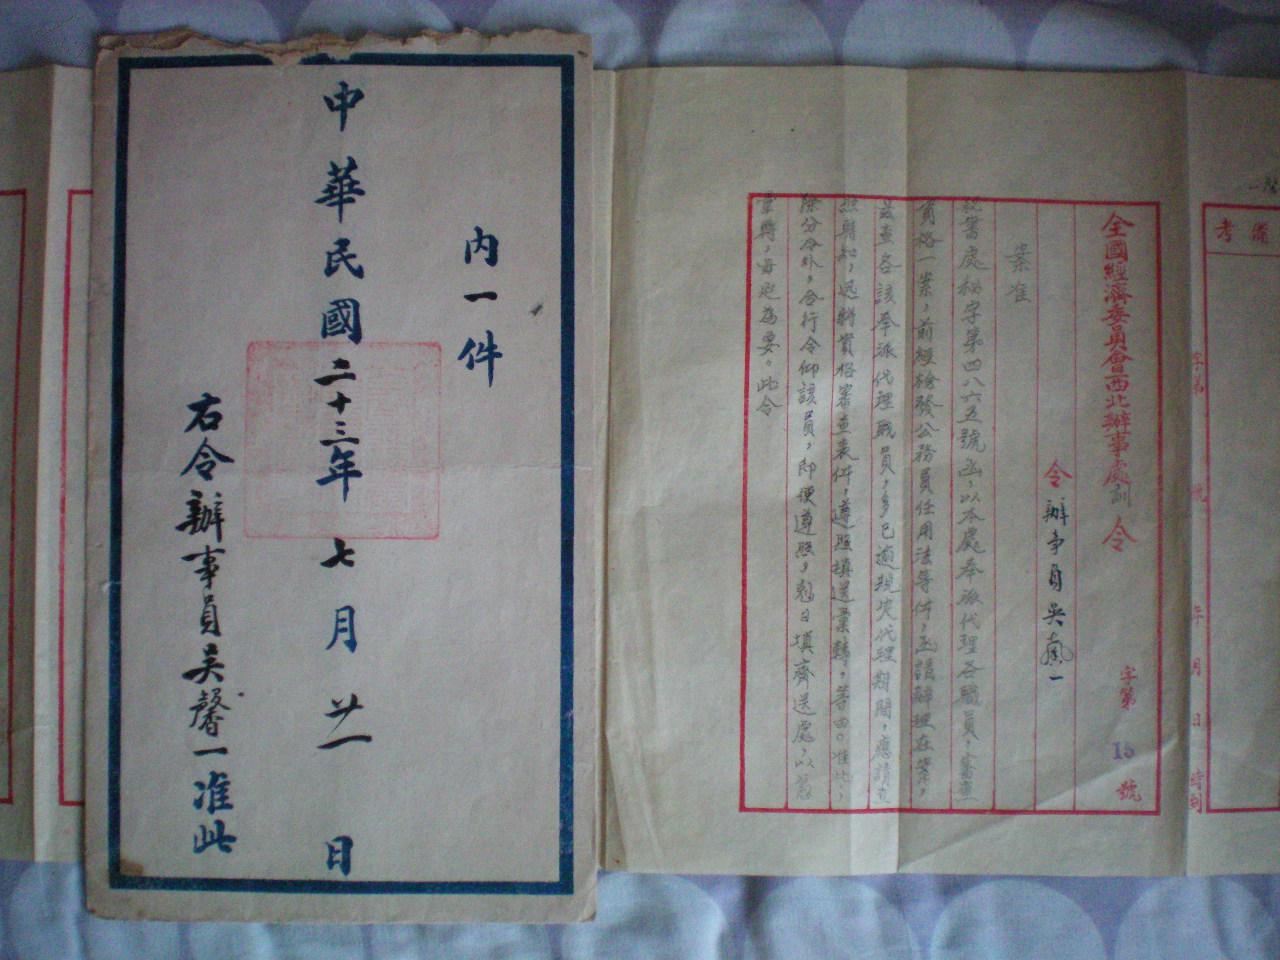 內一件
中華民國二十三年七月廿一日
右令辦事員吳馨一准此
備考
字第 號 年 月 日 時到
全國經濟委員會西北辦事處訓令 字第15號
令辦事員吳馨一
案准
秘書處秘字第四八六五號函，以本處奉派代理各職員，審查
資格一案，前經檢發公務員任用法等件，函請辦理在案，
茲查各該奉派代理職員，多已逾規定代理期間，應請查
照轉知，迅將資格審查表件，遵照填送彙轉，等由。准此，
除分令外，合行令仰該員，即便遵照，剋日填齊送處，以憑
彙轉，毋延為要。此令